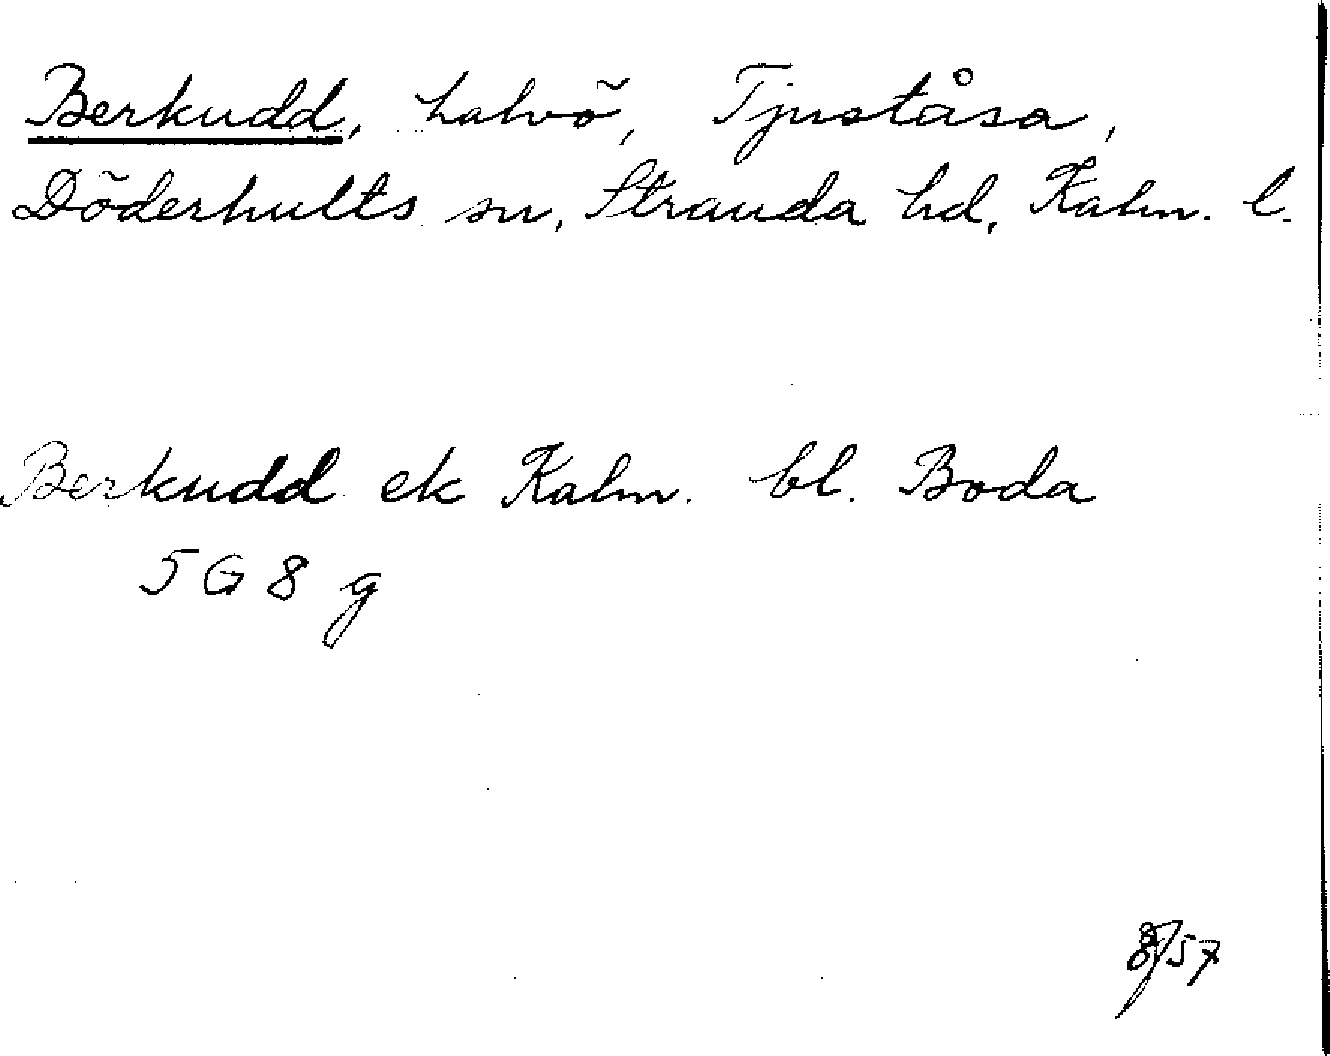 Berkudd, halvö, Tjuståsa,
Döderhults sn, Stranda hd, Kalm. l.
Berkudd ek Kalm. bl. Boda
5 G 8 g
57